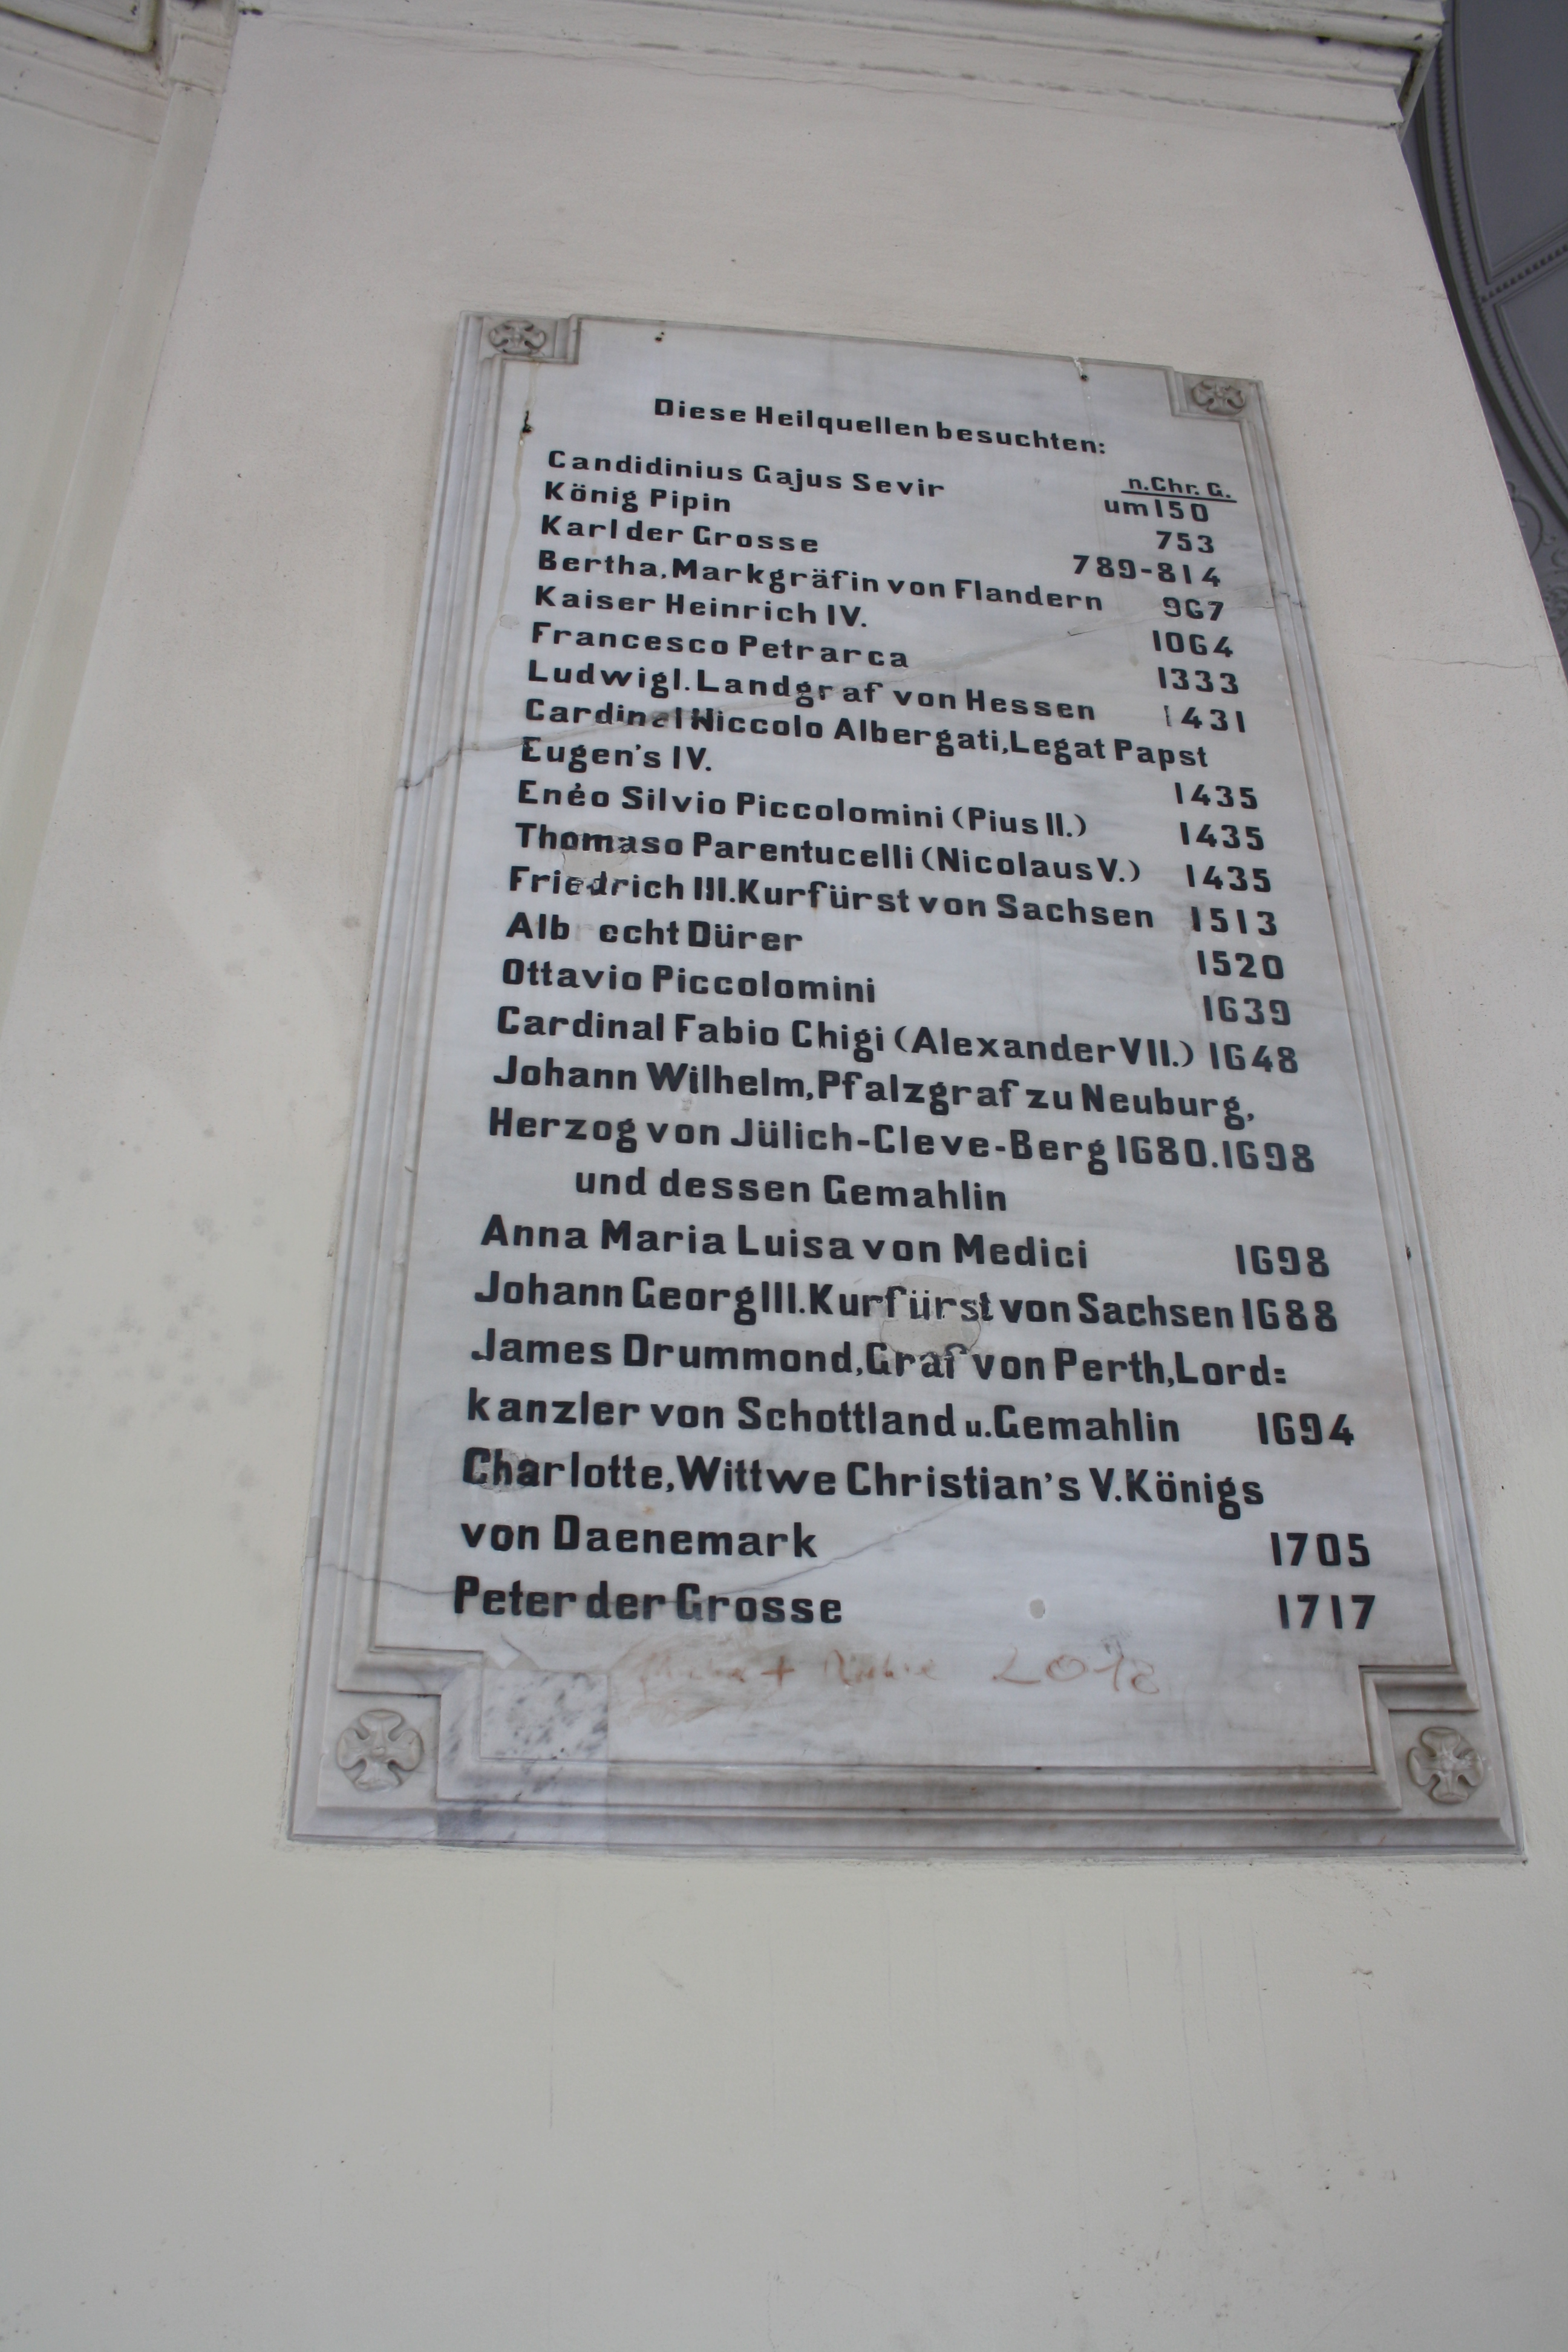 Diese Heilquellen besuchten:
n.Chr. G.
Candidinius Gajus Sevir um 150
König Pipin 753
Karl der Grosse 789-814
Bertha, Markgräfin von Flandern 967
Kaiser Heinrich IV. 1064
Francesco Petrarca 1333
Ludwig I. Landgraf von Hessen 1431
Cardinal Niccolo Albergati, Legat Papst
Eugen's IV. 1435
Enéo Silvio Piccolomini (Pius II.) 1435
Thomaso Parentucelli (Nicolaus V.) 1435
Friedrich III. Kurfürst von Sachsen 1513
Alb echt Dürer 1520
Ottavio Piccolomini 1639
Cardinal Fabio Chigi (Alexander VII.) 1648
Johann Wilhelm, Pfalzgraf zu Neuburg,
Herzog von Jülich-Cleve-Berg 1680.1698
und dessen Gemahlin
Anna Maria Luisa von Medici 1698
Johann Georg III. Kurfürst von Sachsen 1688
James Drummond, Graf von Perth, Lord=
kanzler von Schottland u. Gemahlin 1694
Charlotte, Wittwe Christian's V. Königs
von Daenemark 1705
Peter der Grosse 1717